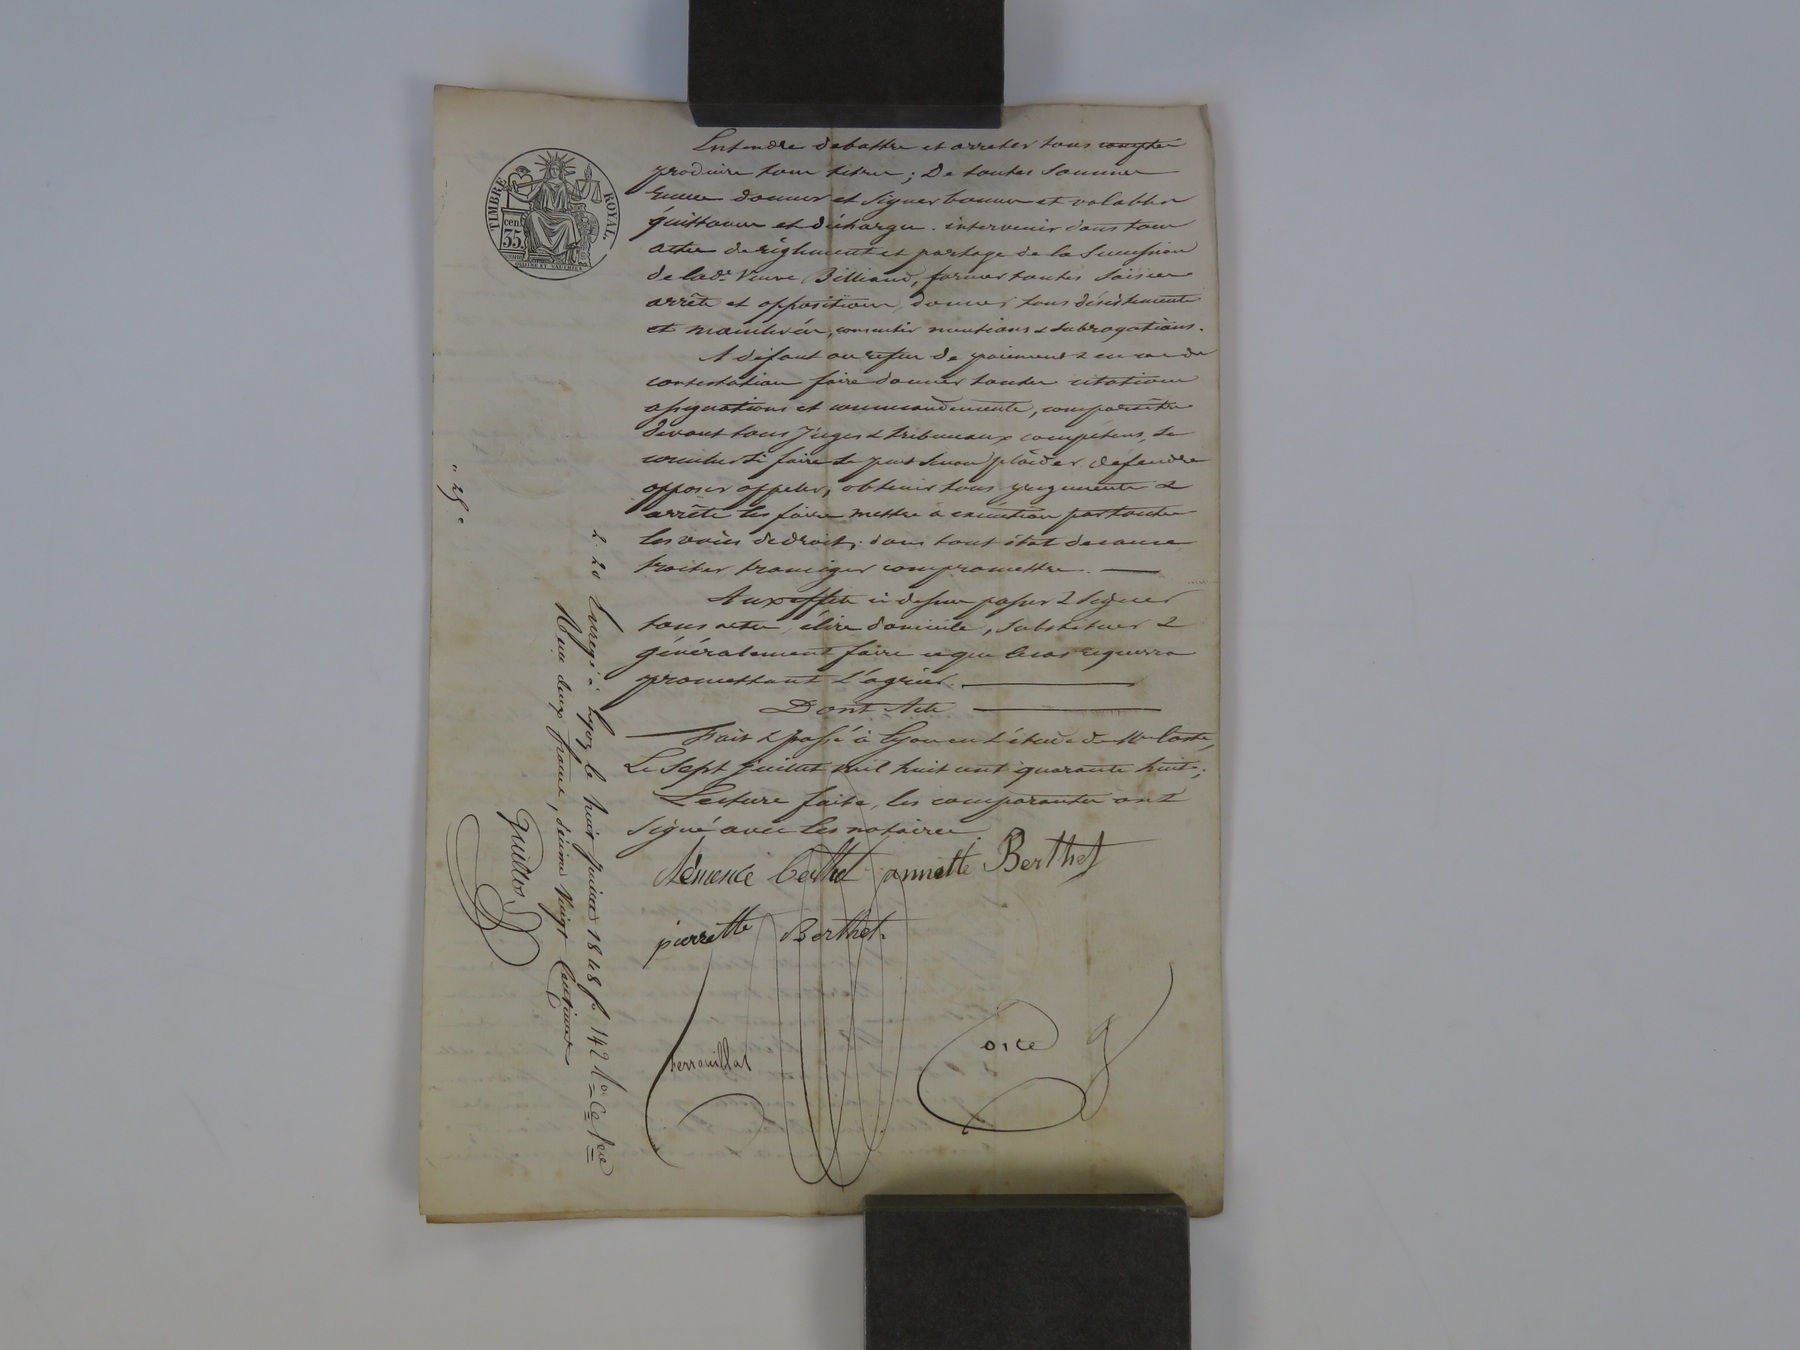 TIMBRE ROYAL.
35 cen.
Entendre debattre et arreter tous comptes
produire tous titres ; De toutes Sommes
reçues donner et signer bonnes et valables
quittances et décharges . intervenir dans tous
actes de règlement et partage de la Succession
de lade. Veuve Billiand, former toutes Saisies
arrêts et oppositions, donner tous désistements
et mainlevées, consentir mentions & subrogations.
A défaut ou refus de paiement & en cas de
contestation faire donner toutes citations
assignations et commandements, comparaitre
devant tous Juges & tribunaux compétens, se
concilier si faire se peut Sinon plaider défendre
opposer appeler, obtenir tous jugements &
arrêts les faire mettre a exécution par toutes
les voies de droit, dans tout état de cause
traiter transiger compromettre. —
Aux effets ci dessus passer & Signer
tous actes, élire domicile, Substituer &
généralement faire ce que le cas requerra
promettant l'agréer. —
Dont Acte —
Fait & passé à Lyon en l'étude de Me Coste,
Le Sept Juillet mil huit cent quarante huit ;
Lecture faite, les comparantes ont
Signé avec les notaires
Clémence Berthet annette Berthet
pierrette Berthet.
ferrouillat
Coste
" 25 c
2. 20 Enregé à Lyon le huit juillet 1848 fo 142
Reçu deux francs, décime Vingt Centimes